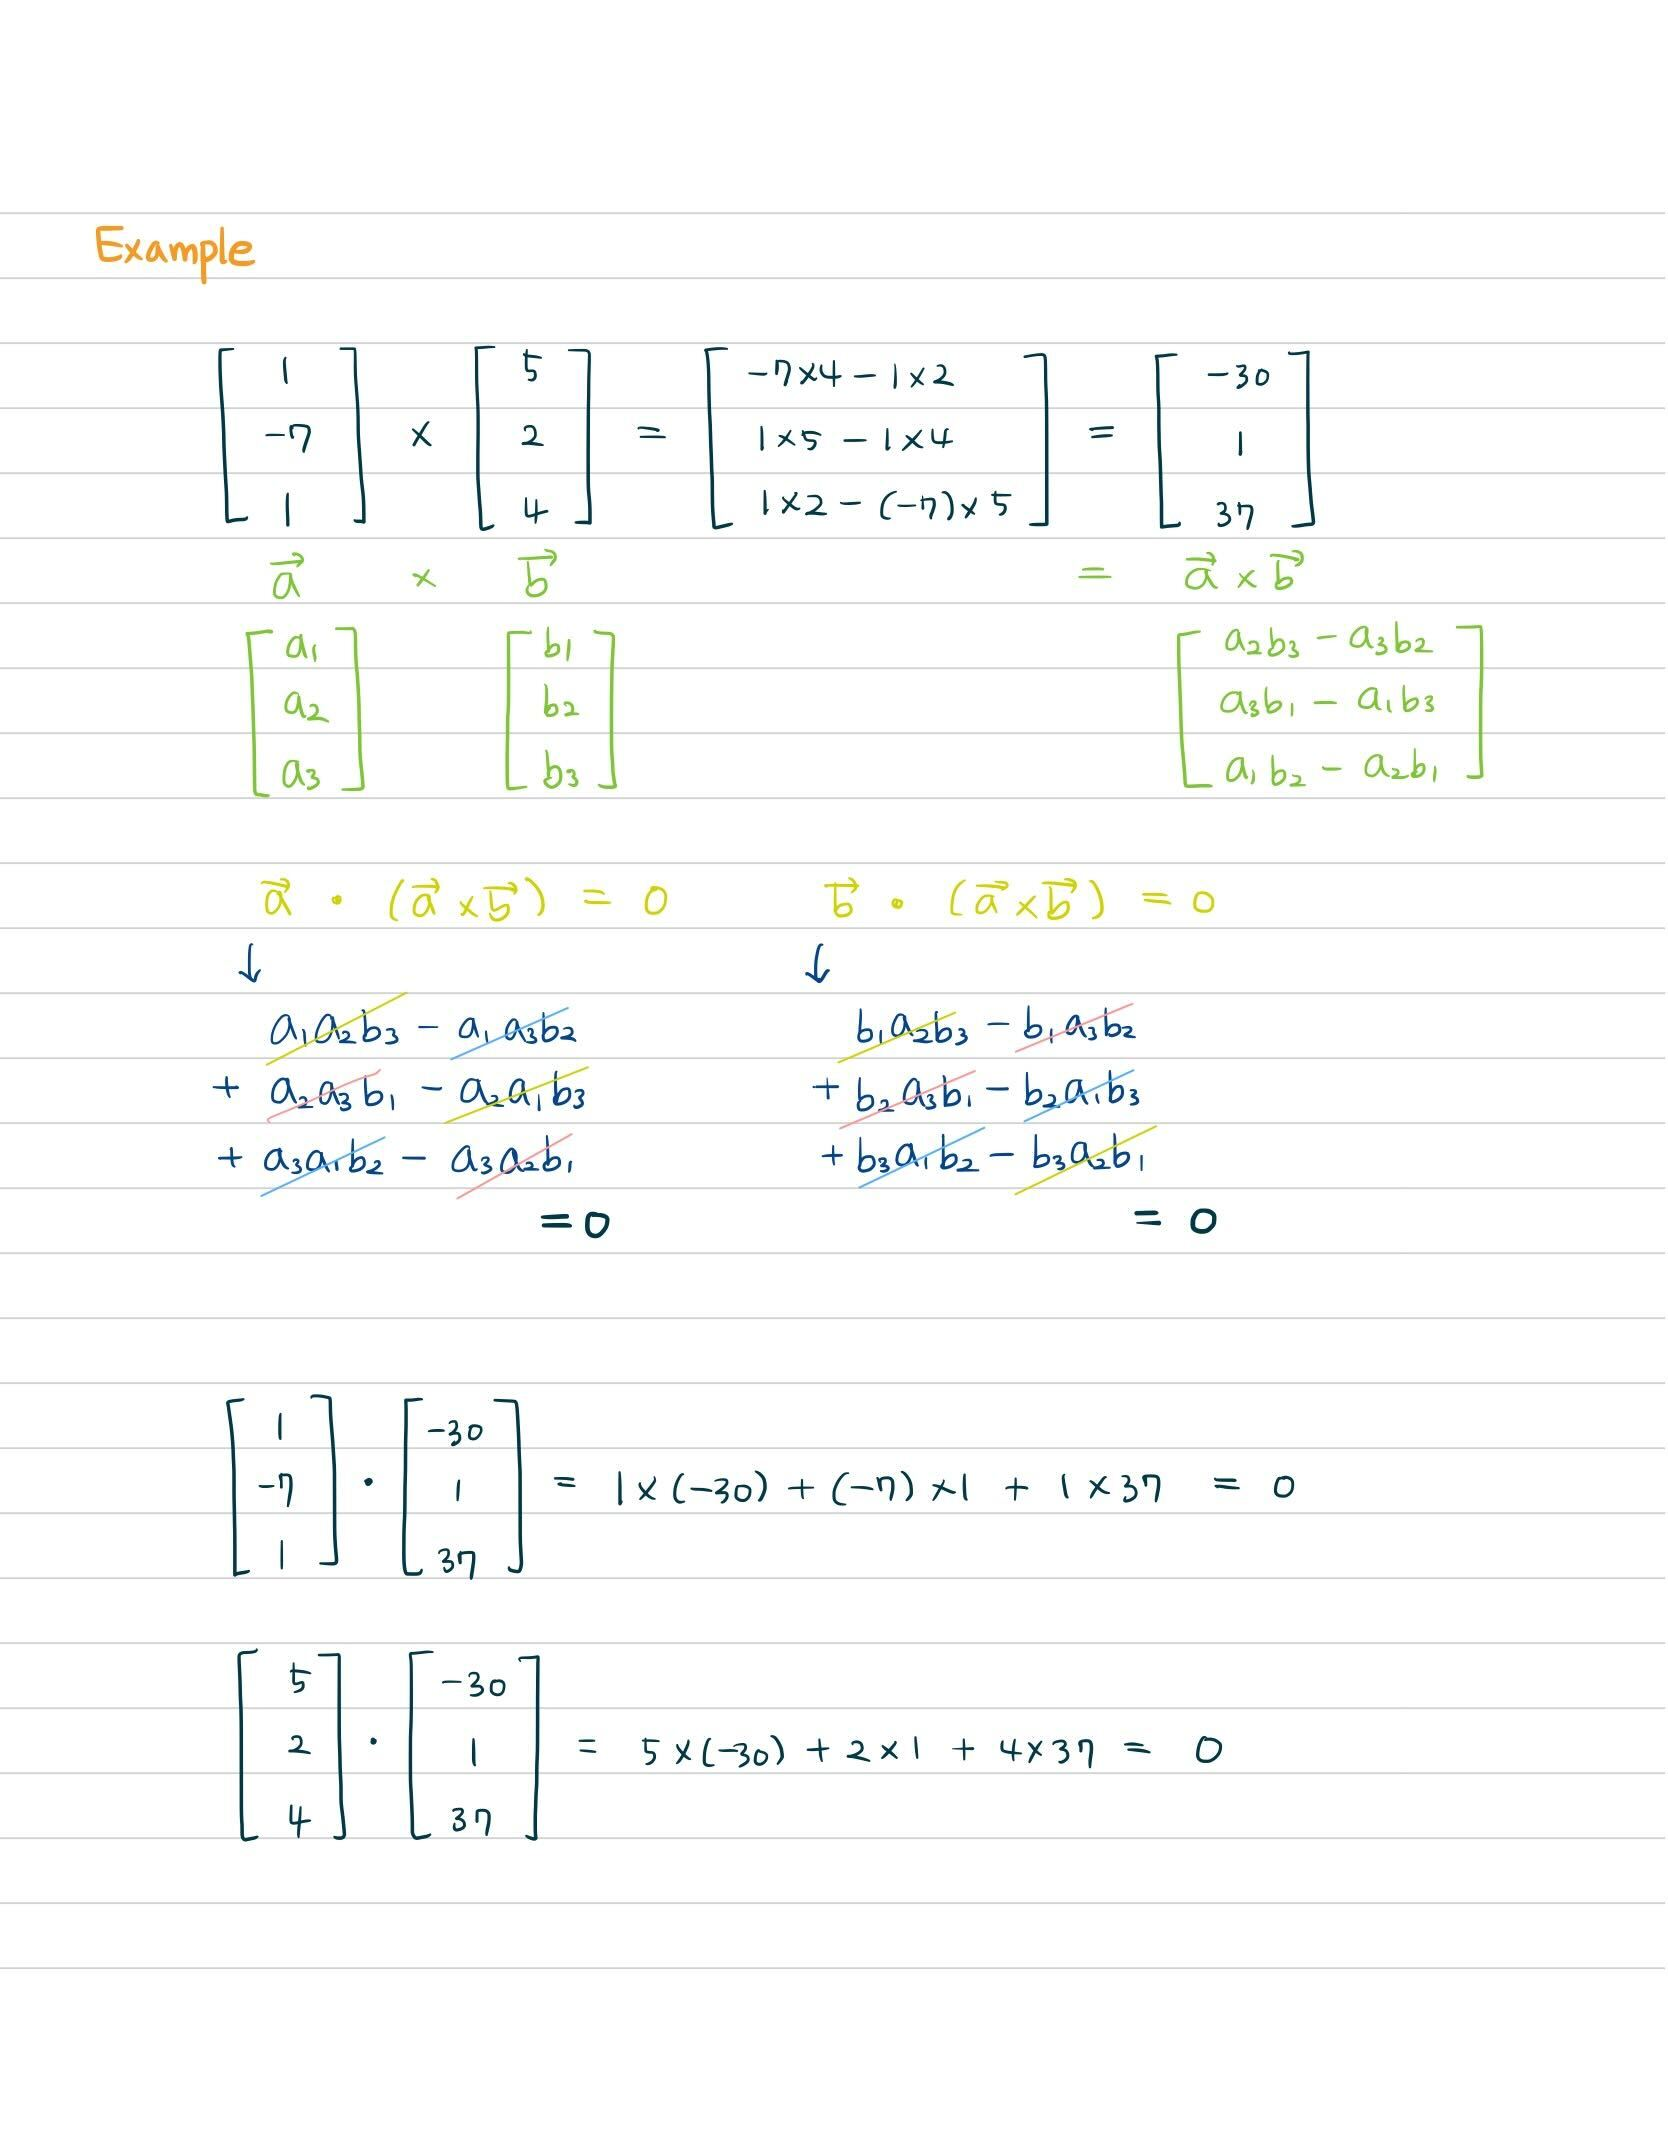 Example
[1 -7 1] × [5 2 4] = [-7×4 - 1×2  1×5 - 1×4  1×2 - (-7)×5] = [-30 1 37]
a⃗ × b⃗ = a⃗ × b⃗
[a₁ a₂ a₃] [b₁ b₂ b₃] [a₂b₃ - a₃b₂  a₃b₁ - a₁b₃  a₁b₂ - a₂b₁]
a⃗ · (a⃗ × b⃗) = 0 b⃗ · (a⃗ × b⃗) = 0
↓ ↓
a₁a₂b₃ - a₁a₃b₂ b₁a₂b₃ - b₁a₃b₂
+ a₂a₃b₁ - a₂a₁b₃ + b₂a₃b₁ - b₂a₁b₃
+ a₃a₁b₂ - a₃a₂b₁ + b₃a₁b₂ - b₃a₂b₁
= 0 = 0
[1 -7 1] · [-30 1 37] = 1×(-30) + (-7)×1 + 1×37 = 0
[5 2 4] · [-30 1 37] = 5×(-30) + 2×1 + 4×37 = 0